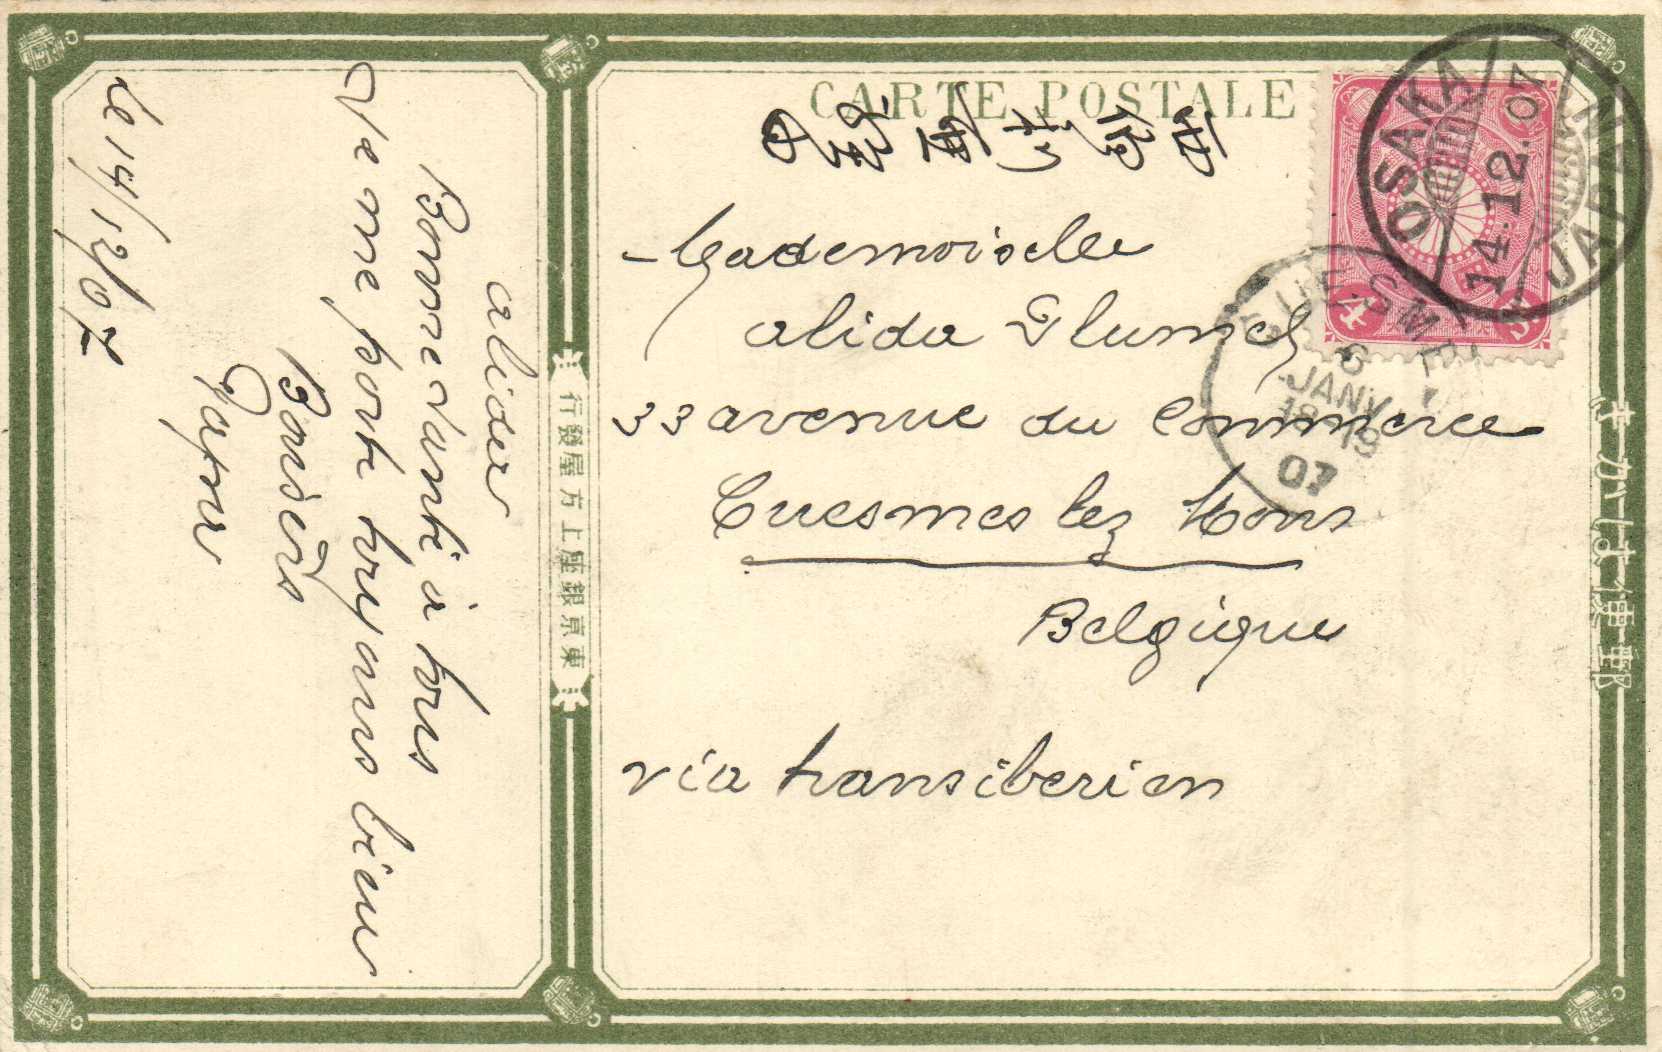 CARTE POSTALE
Mademoiselle
alida Glumel
33 avenue du Commerce
Cuesmes lez Mons
Belgique
via transiberien
OSAKA
14.12.07
JAPAN
CUESMES
6
JANV
18-19
07
4
alida
Bonne Santé à tous
Je me porte toujours bien
Baisers
le 14/12/07
東京銀座上方屋發行
きかは便郵